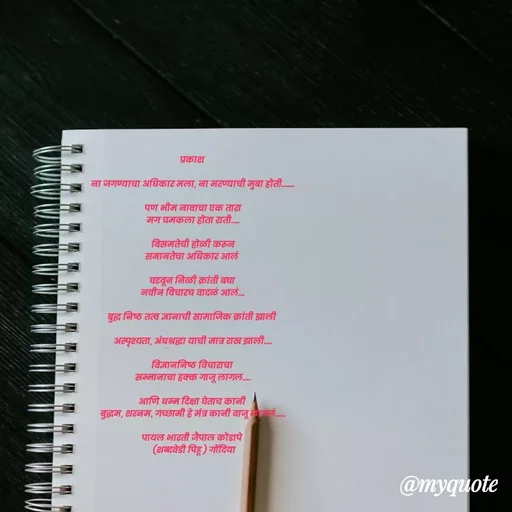 प्रकाश
ना जगण्याचा अधिकार मला, ना मरण्याची मुबा होती......
पण भीम नावाचा एक तारा
मग चमकला होता राती....
विसमतेची होळी करून
समानतेचा अधिकार आलं
घडवून निळी क्रांती बघा
नवीन विचारच वादळं आलं...
बुद्ध निष्ठ तत्व ज्ञानाची सामाजिक क्रांती झाली
अस्पृश्यता, अंधश्रद्धा याची मात्र राख झाली....
विज्ञाननिष्ठ विचाराचा
सम्मानाचा हक्क गाजू लागल....
आणि धम्म दिक्षा घेताच कानी
बुद्धम, शरनम, गच्छामी हे मंत्र कानी वाजू
पायल भारती जैपाल कोडापे
(शब्दवेडी पिहू) गोंदिया
@myquote